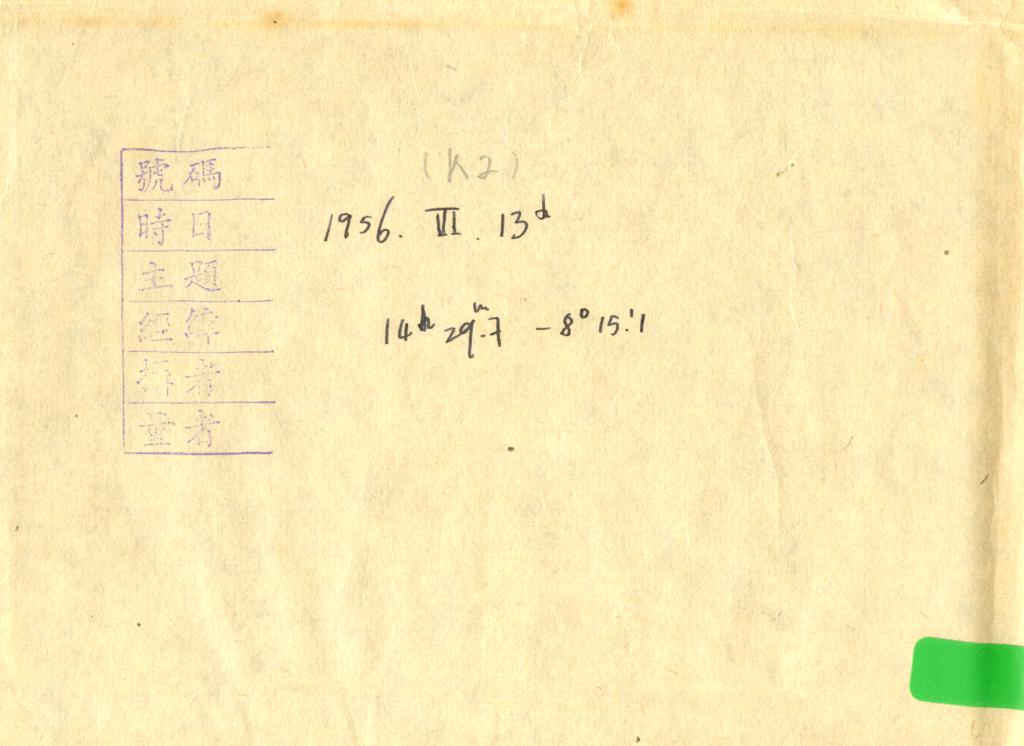 號碼
(K2)
時日
1956. VI. 13ᵈ
主題
經緯
14ʰ 29ᵐ.7 – 8° 15.'1
攝者
量者